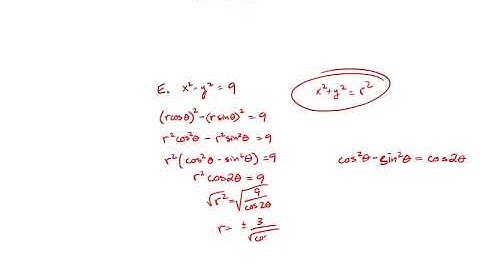 E. x² - y² = 9
x² + y² = r²
(r cosθ)² - (r sinθ)² = 9
r² cos²θ - r² sin²θ = 9
r² (cos²θ - sin²θ) = 9
cos²θ - sin²θ = cos2θ
r² cos2θ = 9
√r² = √(9/cos2θ)
r = ± 3/√co